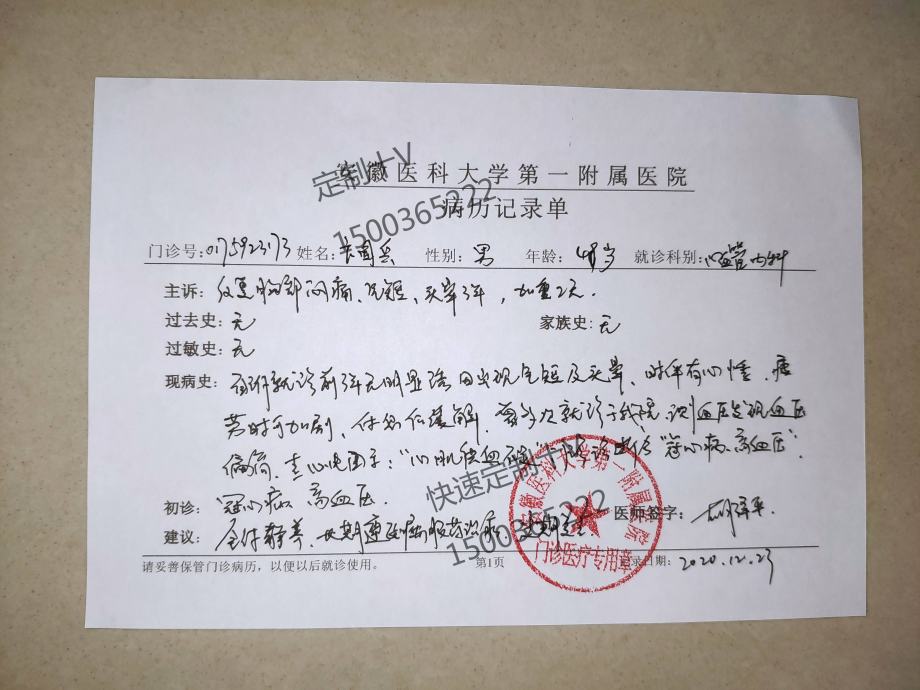 安徽医科大学第一附属医院
病历记录单
门诊号:0175923173 姓名: 性别:男 年龄:48岁 就诊科别:心血管内科
主诉:反复胸部闷痛、气短、头晕3年,加重2天.
过去史:无 家族史:无
过敏史:无
现病史:患者就诊前3年无明显诱因出现气短及头晕,时伴有心悸.疲
劳时可加剧,休息后缓解,曾多次就诊于我院,测血压发现血压
偏高.查心电图示:“心肌缺血”诊断为“冠心病、高血压”
初诊:冠心病 高血压 医师签字:
建议:全休静养、长期遵医嘱服药治疗
请妥善保管门诊病历,以便以后就诊使用。 第1页 记录日期:2020.12.23
安徽医科大学第一附属医院
门诊医疗专用章
定制+V
1500365222
快速定制+V
1500365222